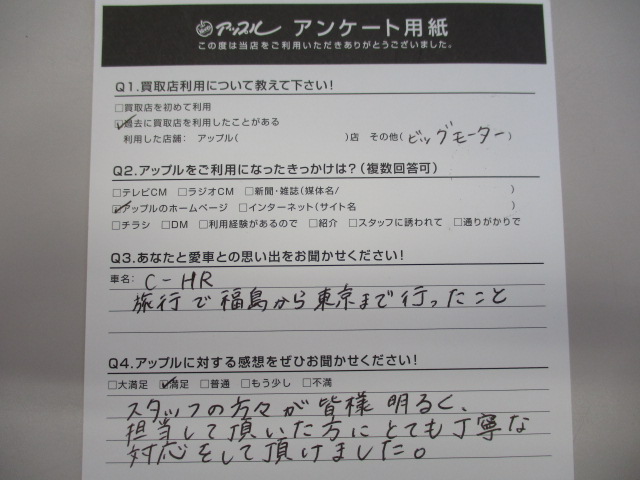 アップル アンケート用紙
この度は当店をご利用いただきありがとうございました。
Q1.買取店利用について教えて下さい!
□買取店を初めて利用
☑過去に買取店を利用したことがある
利用した店舗: アップル( )店 その他(ビッグモーター)
Q2.アップルをご利用になったきっかけは?(複数回答可)
□テレビCM □ラジオCM □新聞・雑誌(媒体名/ )
☑アップルのホームページ □インターネット(サイト名 )
□チラシ □DM □利用経験があるので □紹介 □スタッフに誘われて □通りがかりで
Q3.あなたと愛車との思い出をお聞かせください!
車名: C-HR
旅行で福島から東京まで行ったこと
Q4.アップルに対する感想をぜひお聞かせください!
□大満足 ☑満足 □普通 □もう少し □不満
スタッフの方々が皆様明るく、
担当して頂いた方にとても丁寧な
対応をして頂けました。